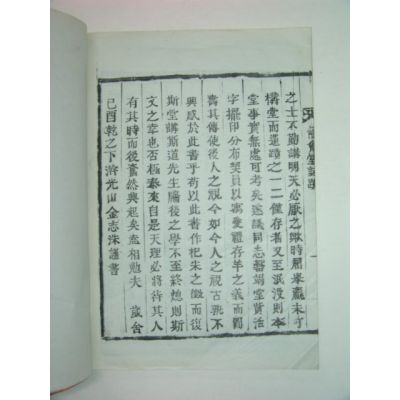 之士不勤講明天必厭之歟時屈擧羸未可
構堂而還讀之一二僅存者又至泯沒則本
堂事實無處可考矣遂議同志鬻堂貲活
字擺印分布契員以寓愛禮存羊之義而
壽其傳使後人之視今如今人之視古孰不
興感於此書乎苟以此書作杞朱之徵而復
斯堂講斯道先生牖後之學不至終熄則斯
文之幸也否極泰來自是天理必將待其人
有其時而後奮然興起矣盍相勉夫 歲舍
己酉乾之下澣光山金志洙謹書